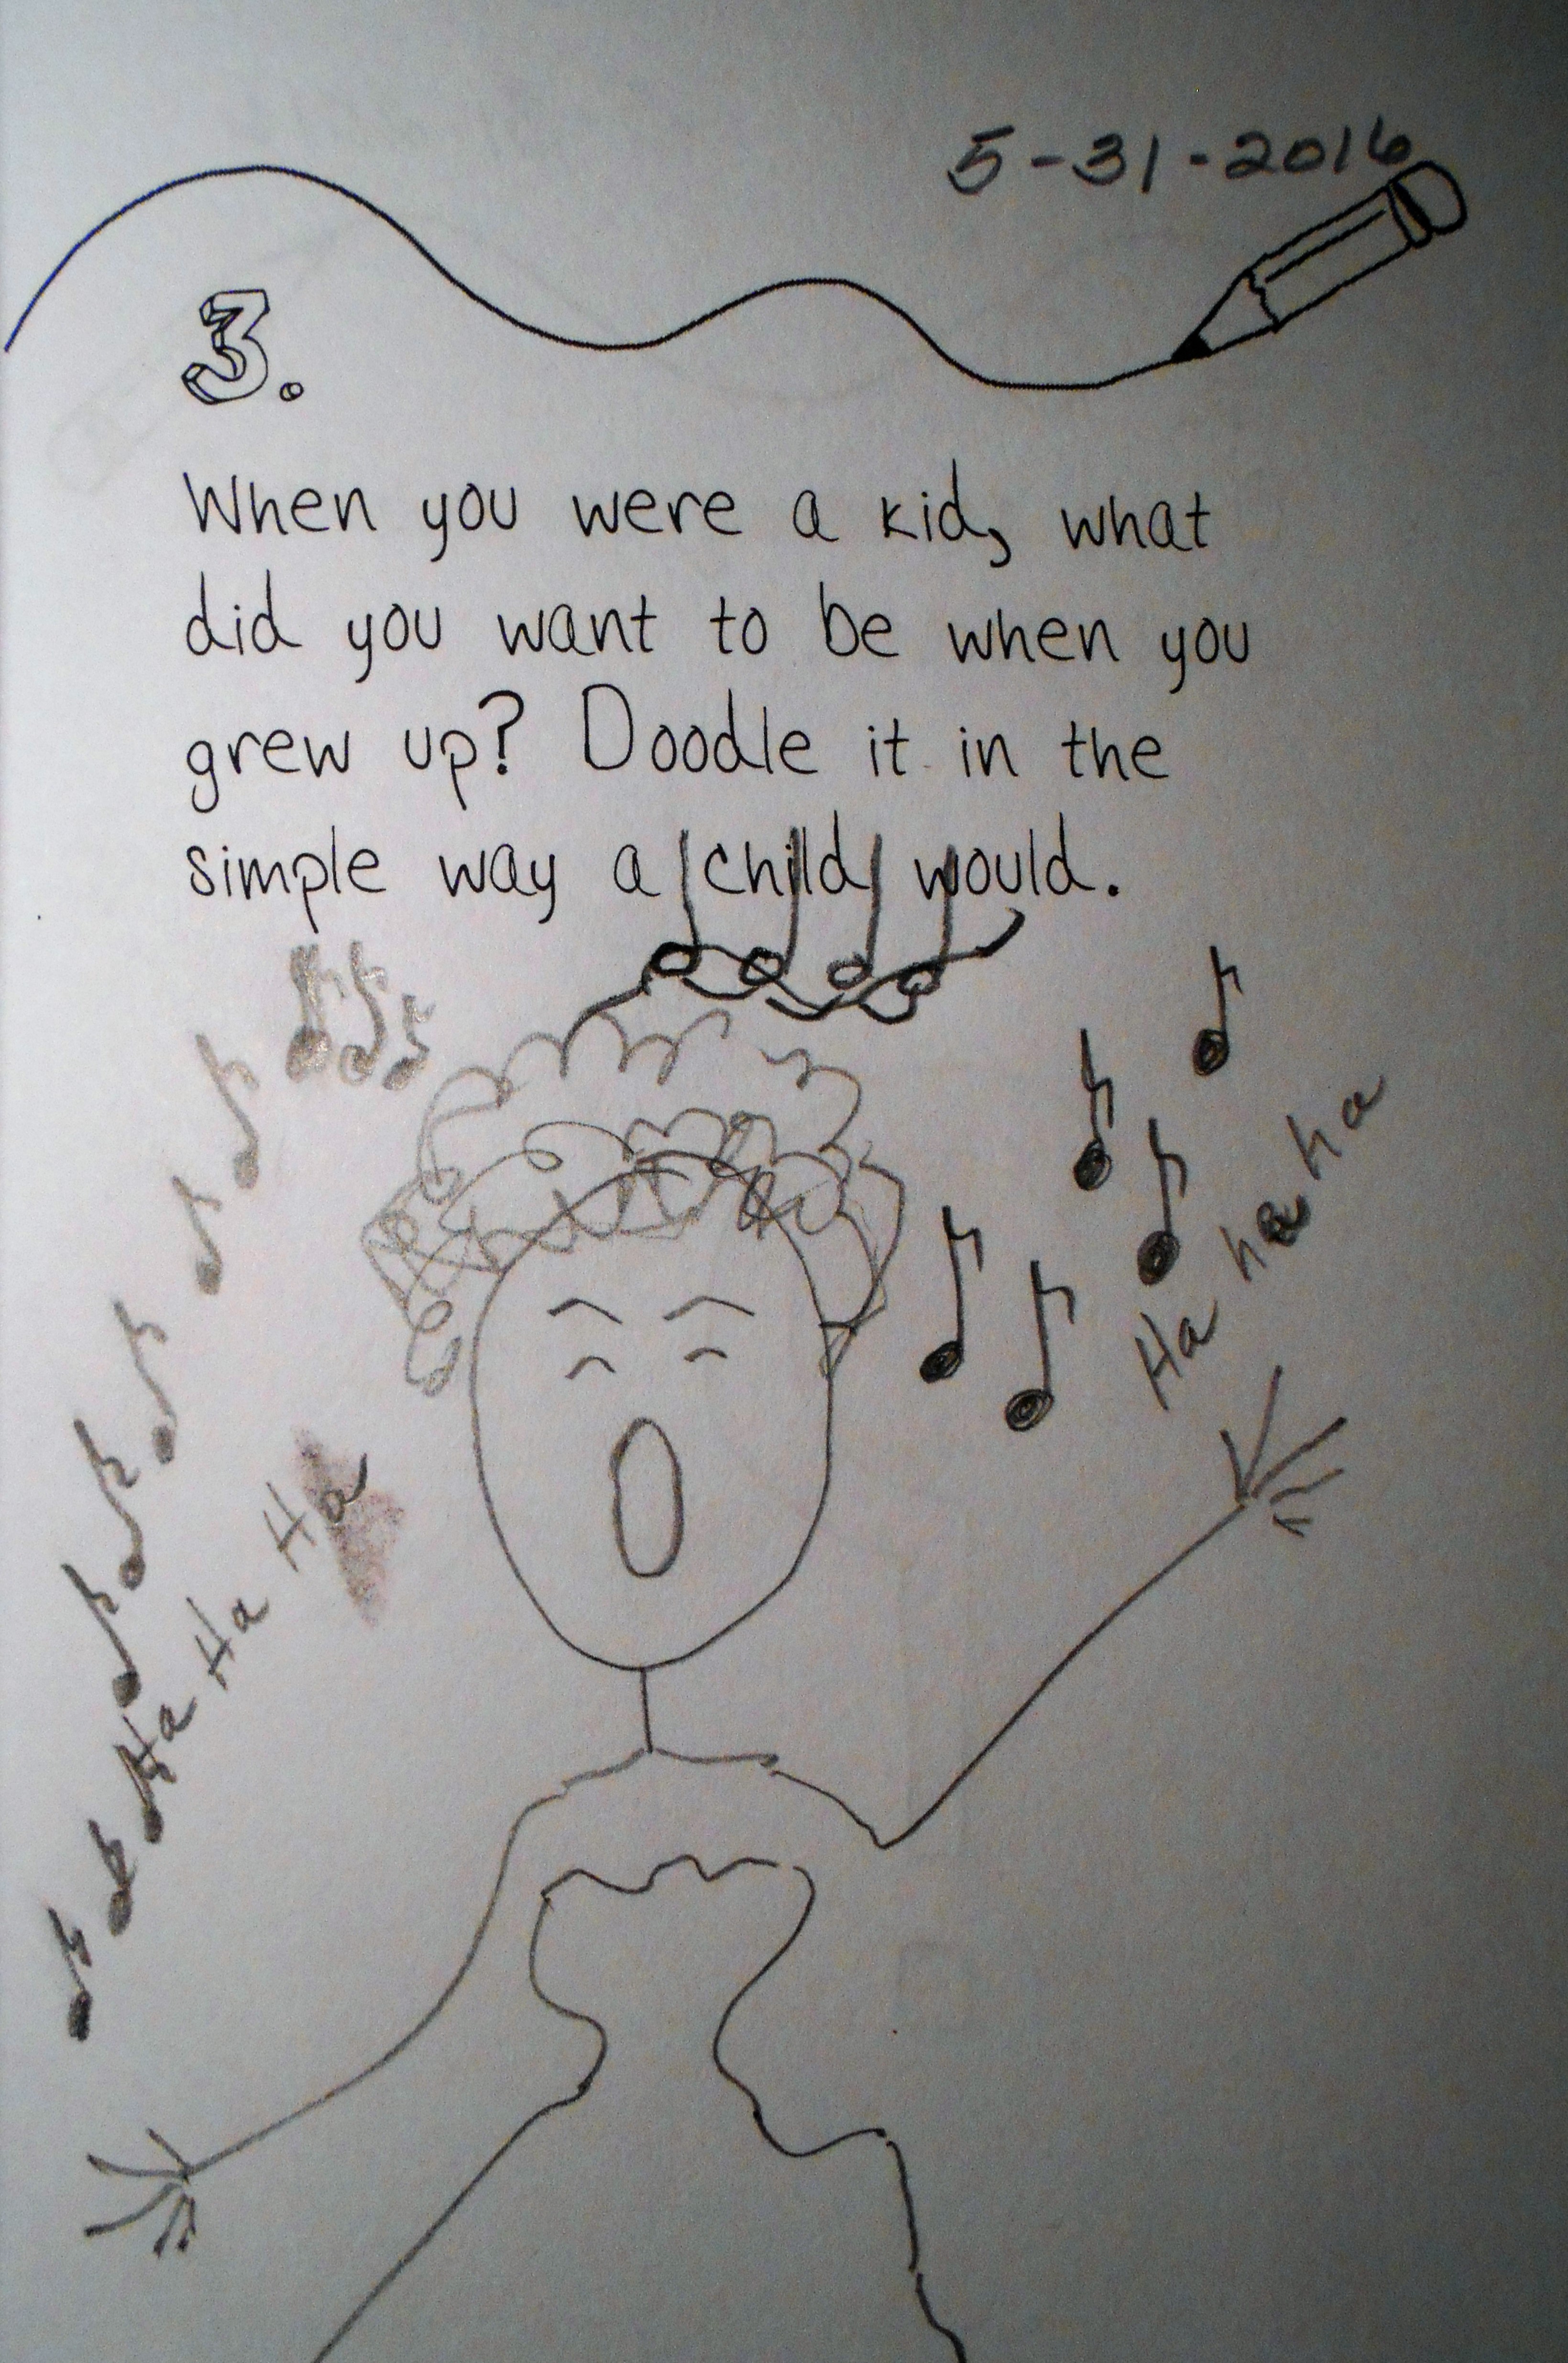 5-31-2016
3.
When you were a kid, what
did you want to be when you
grew up? Doodle it in the
simple way a child would.
Ha ha ha ha
Ha Ha Ha Ha